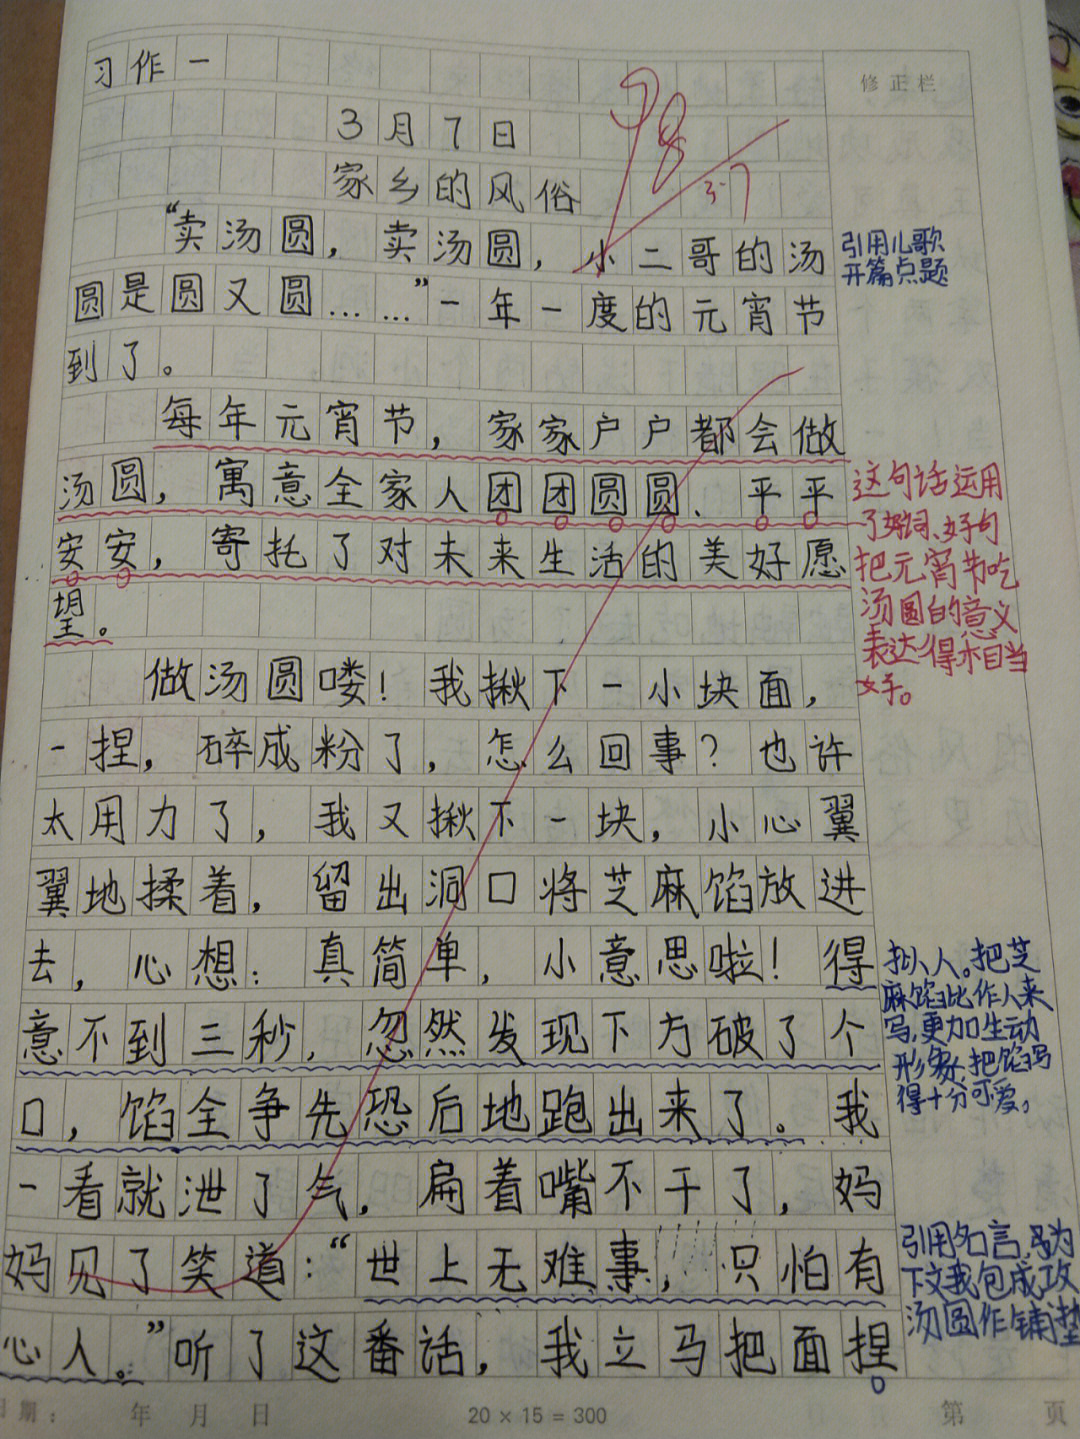 习作一
修正栏
98
3月7日
3.7
家乡的风俗
“卖汤圆，卖汤圆，小二哥的汤
圆是圆又圆……”一年一度的元宵节
到了。
引用儿歌
开篇点题
每年元宵节，家家户户都会做
汤圆，寓意全家人团团圆圆、平平
安安，寄托了对未来生活的美好愿
望。
这句话运用
了好词、好句
把元宵节吃
汤圆的意义
表达得相当
好。
做汤圆喽！我揪下一小块面，
一捏，碎成粉了，怎么回事？也许
太用力了，我又揪下一块，小心翼
翼地揉着，留出洞口将芝麻馅放进
去，心想：真简单，小意思啦！得
意不到三秒，忽然发现下方破了个
口，馅全争先恐后地跑出来了。我
一看就泄了气，扁着嘴不干了，妈
妈见了笑道：“世上无难事，只怕有
心人。”听了这番话，我立马把面捏
拟人。把芝
麻馅比作人来
写，更加生动
形象，把馅写
得十分可爱。
引用名言，为
下文我包成功
汤圆作铺垫
日期： 年 月 日
20×15=300
第 页